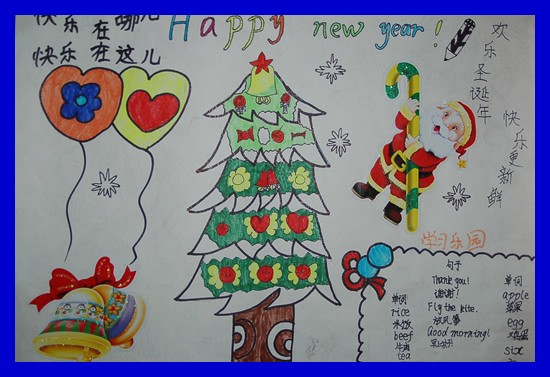 快乐在哪儿
快乐在这儿
Happy new year!
欢乐圣诞年
快乐更新鲜
学习乐园
单词
rice
米饭
beef
牛肉
tea
句子
Thank you!
谢谢!
Fly the kite.
放风筝
Good morning!
早上好
单词
apple
苹果
egg
鸡蛋
six